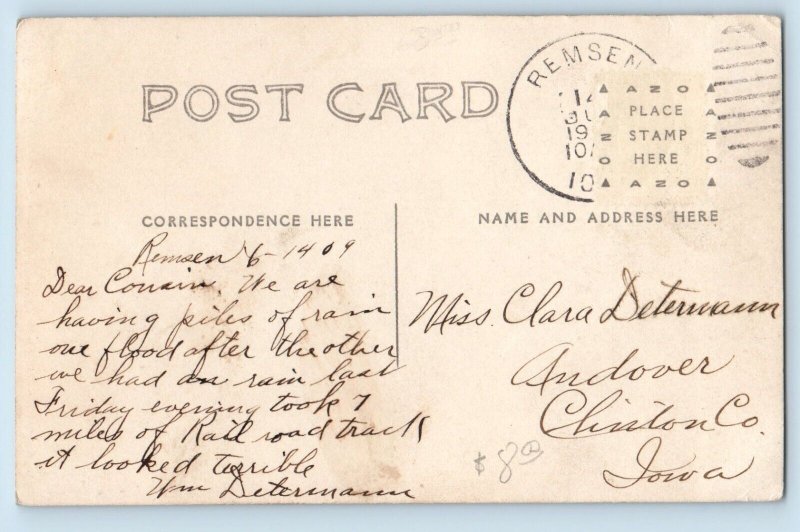 POST CARD
REMSEN
14
19
10
AZO
PLACE
STAMP
HERE
AZO
CORRESPONDENCE HERE
NAME AND ADDRESS HERE
Remsen 6-1409
Dear Cousin. We are
having piles of rain
one flood after the other
we had an rain last
Friday evening took 7
miles of Rail road track
it looked terrible
Wm Determann
Miss. Clara Determann
Andover
Clinton Co.
Iowa
$8.00